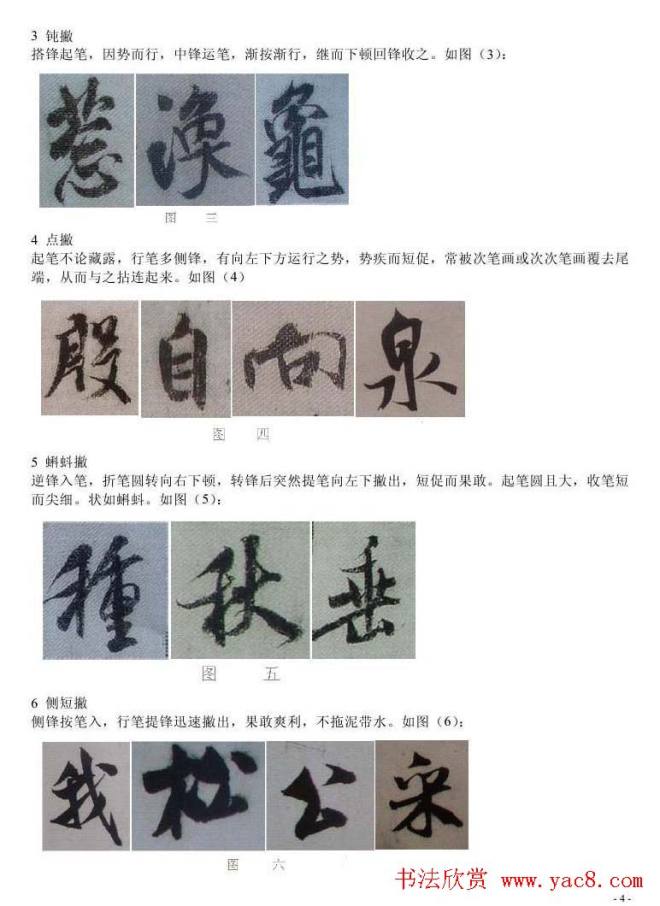 3 钝撇
搭锋起笔，因势而行，中锋运笔，渐按渐行，继而下顿回锋收之。如图（3）：
惹 渔 龜
图 三
4 点撇
起笔不论藏露，行笔多侧锋，有向左下方运行之势，势疾而短促，常被次笔画或次次笔画覆去尾
端，从而与之拈连起来。如图（4）
殷 自 向 泉
图 四
5 蝌蚪撇
逆锋入笔，折笔圆转向右下顿，转锋后突然提笔向左下撇出，短促而果敢。起笔圆且大，收笔短
而尖细。状如蝌蚪。如图（5）：
種 秋 垂
图 五
6 侧短撇
侧锋按笔入，行笔提锋迅速撇出，果敢爽利，不拖泥带水。如图（6）：
我 松 公 采
图 六
书法欣赏 www.yac8.com
- 4 -